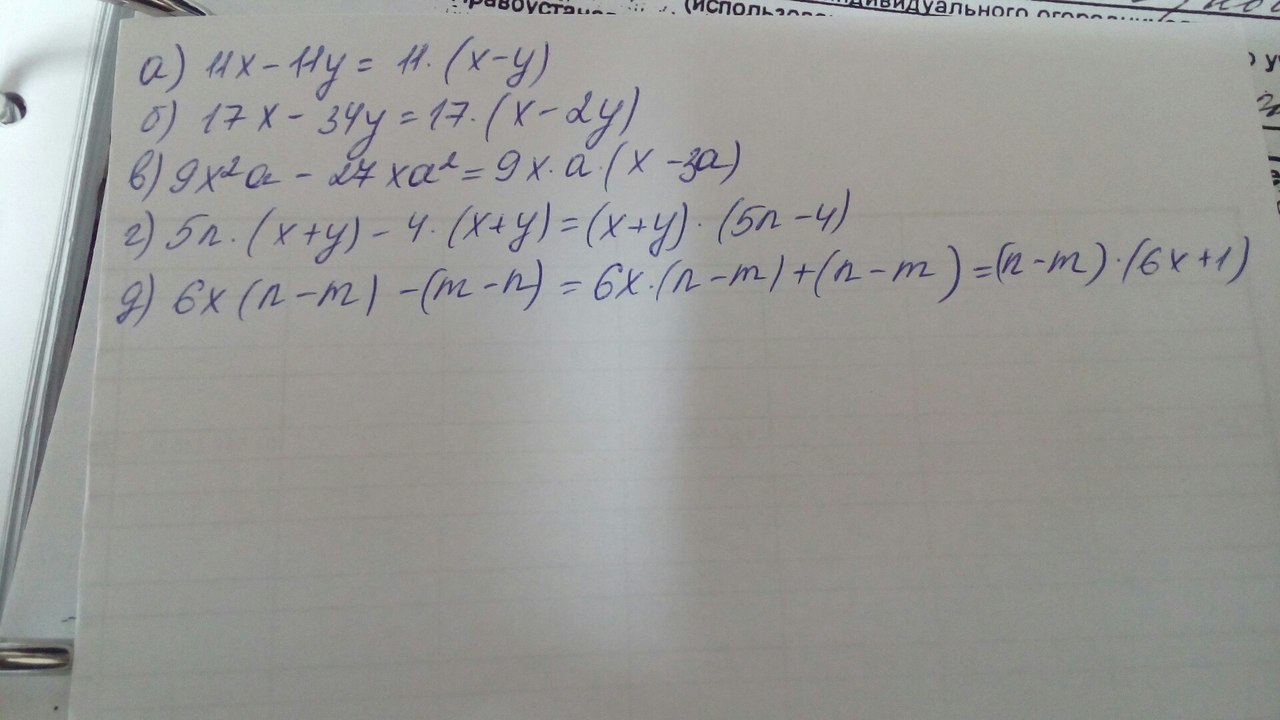 правоустанов
(использова
ндивидуального огородни
а) 11x - 11y = 11 · (x - y)
б) 17x - 34y = 17 · (x - 2y)
в) 9x²a - 27xa² = 9x · a · (x - 3a)
г) 5n · (x + y) - 4 · (x + y) = (x + y) · (5n - 4)
д) 6x (n - m) - (m - n) = 6x · (n - m) + (n - m) = (n - m) · (6x + 1)